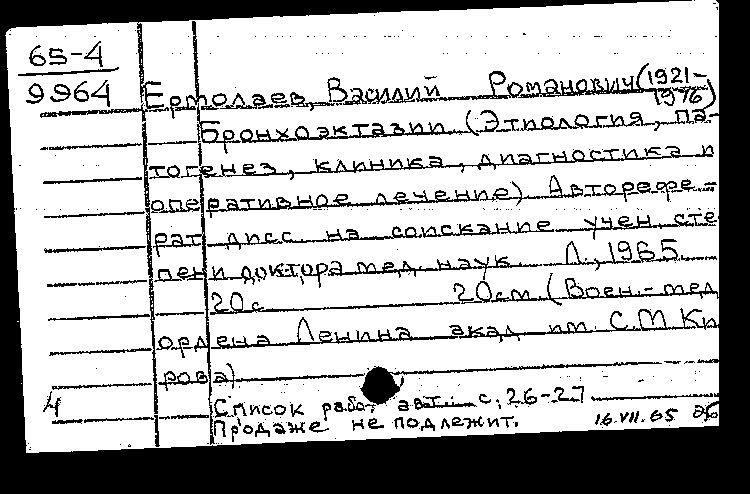 65-4
9964
Ермолаев, Василий Романович (1921-
1976)
Бронхоэктазии (Этиология, па-
тогенез, клиника, диагностика и
оперативное лечение) Авторефе-
рат дисс. на соискание учен. сте
пени доктора мед. наук. Л., 1965.
20с 20см. (Воен.-мед
ордена Ленина акад им. С.М Ки
рова)
4 Список работ авт. с. 26-27
Продаже не подлежит. 16.VII.65